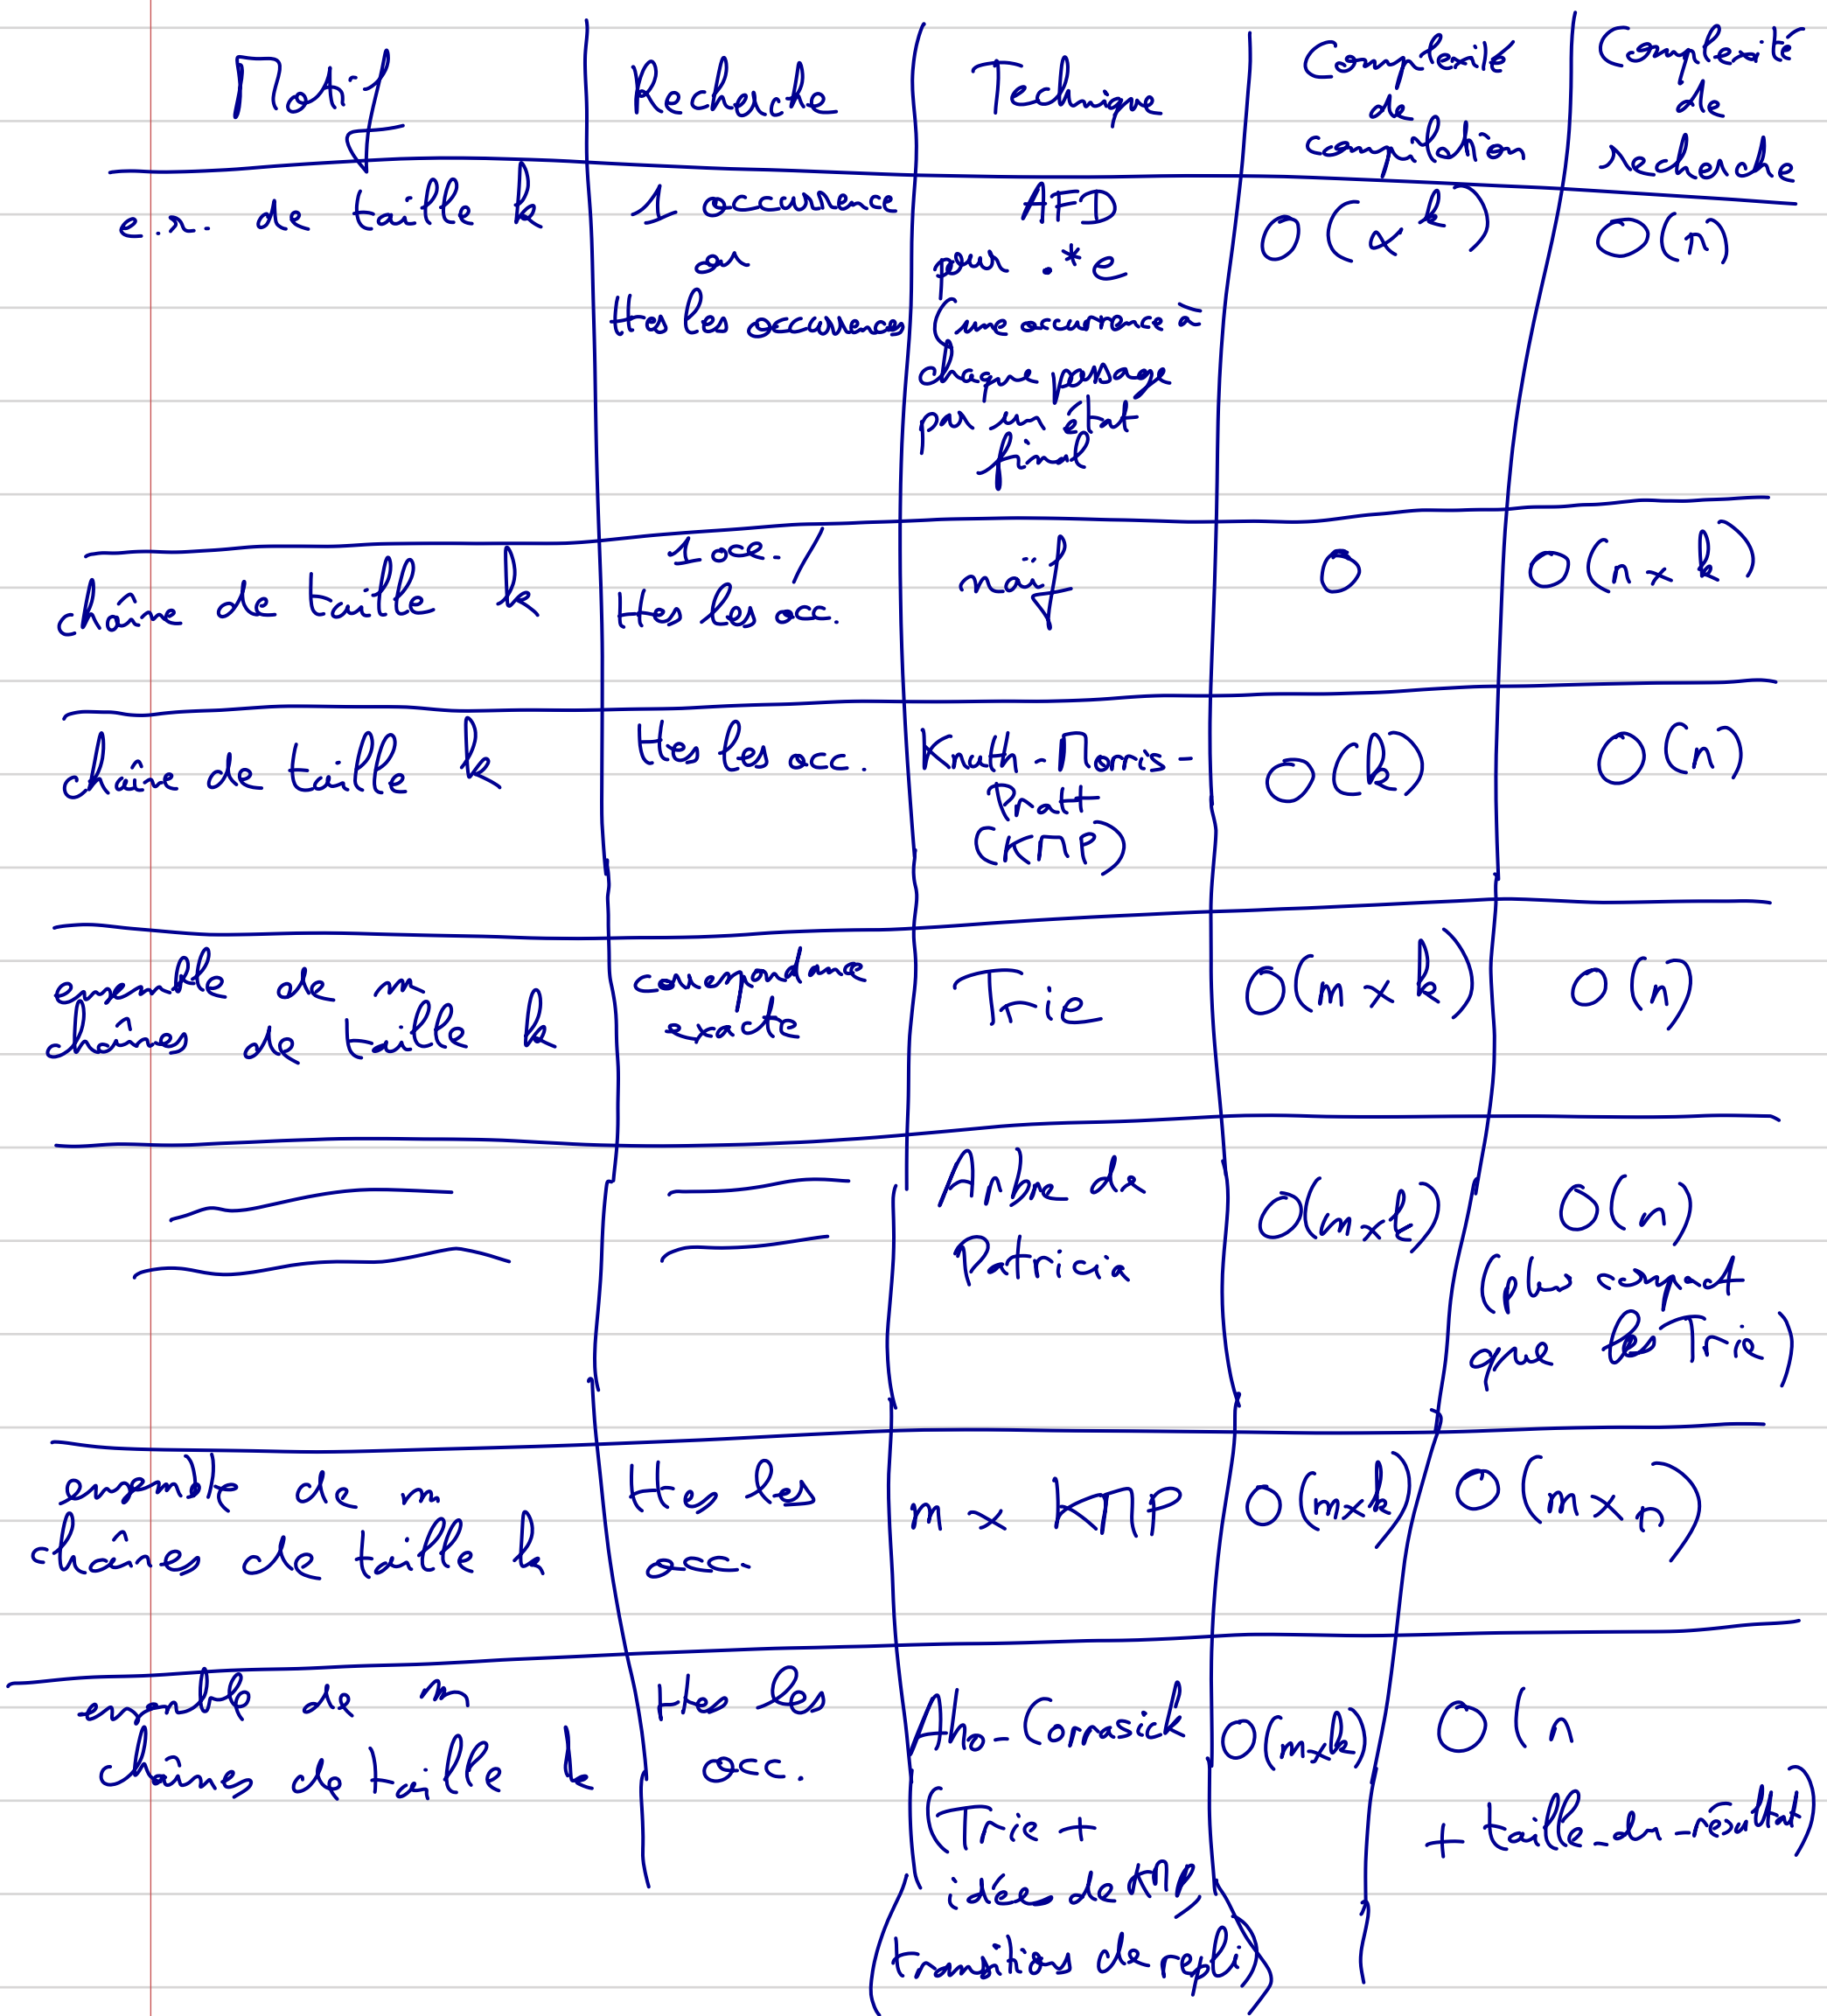 Motif Recherche Technique Complexité de compilation Complexité de recherche
e.r. de taille k
1 occurrence
ou
ttes les occurrences
AFD
pour .*e
(une occurrence à
chaque passage
par un état
final
O(α^k)
O(n)
chaîne de taille k
1 occ. /
ttes les occ.
naïf
0
O(n × k)
chaîne de taille k
ttes les occ.
Knuth-Morris-
Pratt
(KMP)
O(k)
O(n)
ensemble de m
chaînes de taille k
correspondance
exacte
Trie
O(m × k)
O(n)
Arbre de
Patricia
O(m×k)
O(n)
(plus compact
que les Trie)
ensemble de m
chaînes de taille k
ttes les
occ.
m × KMP
O(m×k)
O(m×n)
ensemble de m
chaînes de taille k
ttes les
occ.
Aho-Corasick
(Trie +
idée de KMP,
transitions de repli)
O(m×k)
O(n
+ taille_du_résultat)